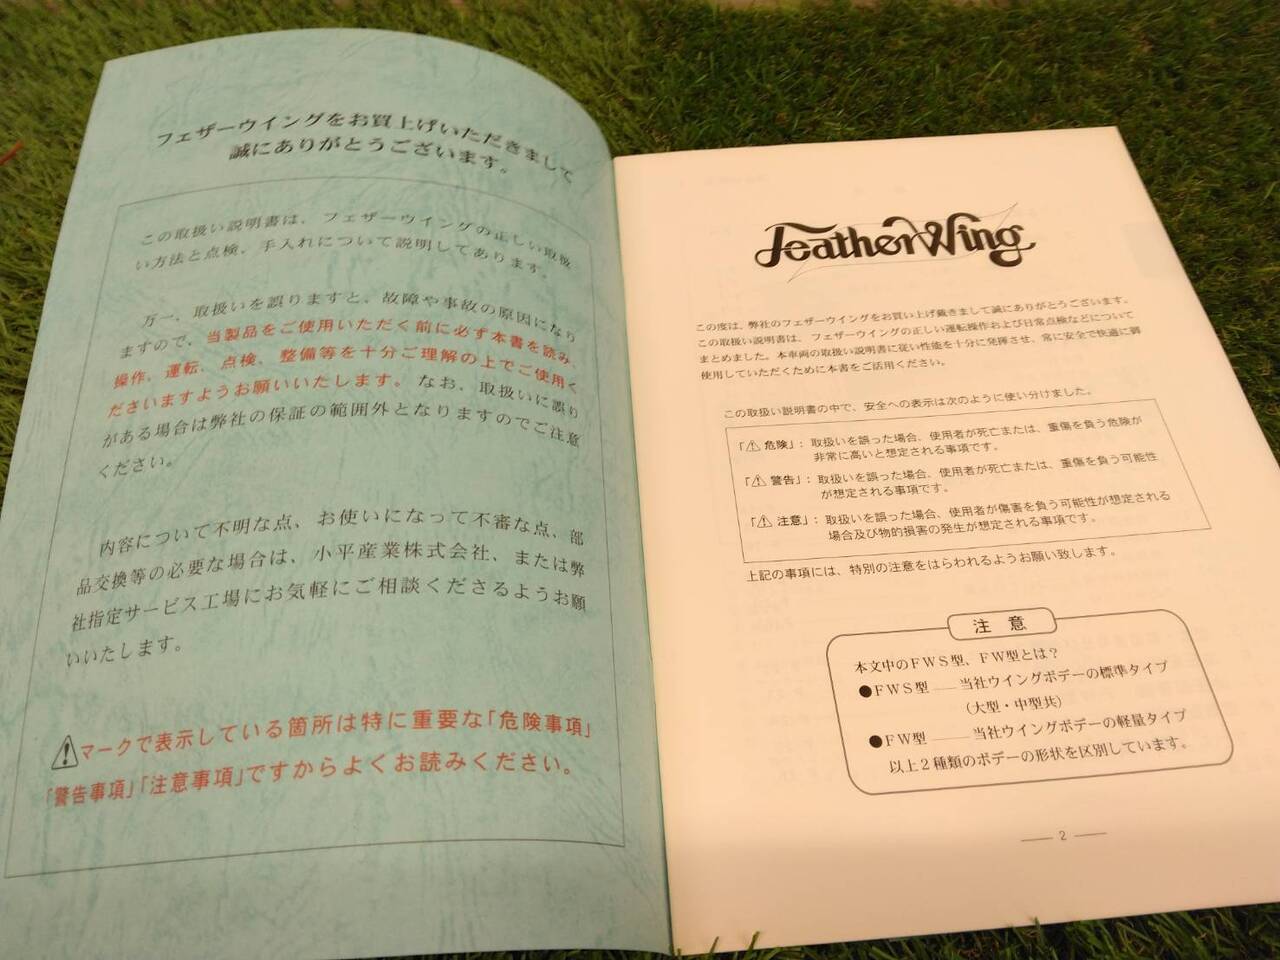 フェザーウイングをお買上げいただきまして
誠にありがとうございます。
この取扱い説明書は、フェザーウイングの正しい取扱
い方法と点検、手入れについて説明してあります。
万一、取扱いを誤りますと、故障や事故の原因になり
ますので、当製品をご使用いただく前に必ず本書を読み、
操作、運転、点検、整備等を十分ご理解の上でご使用く
ださいますようお願いいたします。なお、取扱いに誤り
がある場合は弊社の保証の範囲外となりますのでご注意
ください。
内容について不明な点、お使いになって不審な点、部
品交換等の必要な場合は、小平産業株式会社、または弊
社指定サービス工場にお気軽にご相談くださるようお願
いいたします。
⚠マークで表示している箇所は特に重要な「危険事項」
「警告事項」「注意事項」ですからよくお読みください。
FeatherWing
この度は、弊社のフェザーウイングをお買い上げ戴きまして誠にありがとうございます。
この取扱い説明書は、フェザーウイングの正しい運転操作および日常点検などについて
まとめました。本車両の取扱い説明書に従い性能を十分に発揮させ、常に安全で快適に御
使用していただくために本書をご活用ください。
この取扱い説明書の中で、安全への表示は次のように使い分けました。
「⚠危険」：取扱いを誤った場合、使用者が死亡または、重傷を負う危険が
非常に高いと想定される事項です。
「⚠警告」：取扱いを誤った場合、使用者が死亡または、重傷を負う可能性
が想定される事項です。
「⚠注意」：取扱いを誤った場合、使用者が傷害を負う可能性が想定される
場合及び物的損害の発生が想定される事項です。
上記の事項には、特別の注意をはらわれるようお願い致します。
注 意
本文中のＦＷＳ型、ＦＷ型とは？
●ＦＷＳ型 ── 当社ウイングボデーの標準タイプ
（大型・中型共）
●ＦＷ型 ─── 当社ウイングボデーの軽量タイプ
以上２種類のボデーの形状を区別しています。
── 2 ──